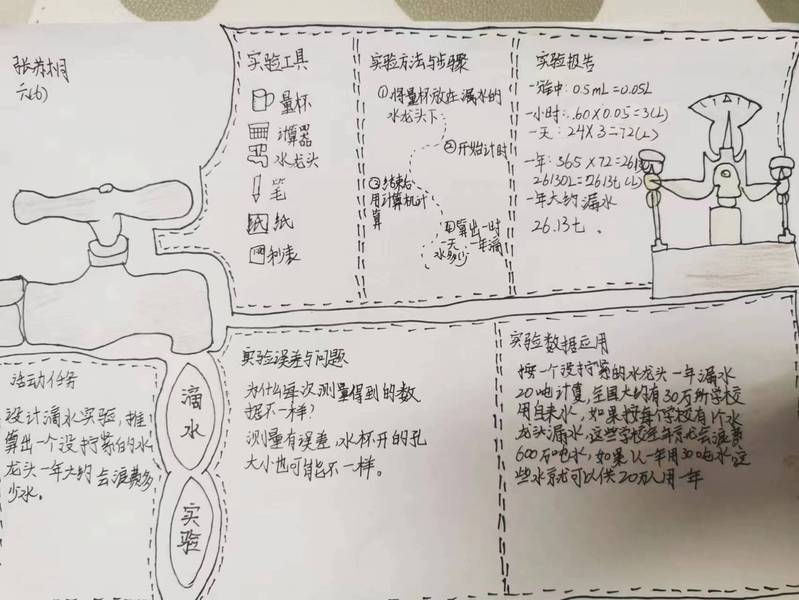 张苏桐
六(6)
实验工具
量杯
计算器
水龙头
笔
纸
秒表
实验方法与步骤
①将量杯放在漏水的
水龙头下
②开始计时
③结束后
用计算机计
算
④算出一时
一天、一年滴
水多少
实验报告
一分钟: 0.5mL=0.05L
一小时: 60×0.05=3(L)
一天: 24×3=72(L)
一年: 365×72=2613
26130L=2613t(L)
一年大约漏水
26.13t。
活动任务
设计滴水实验,推
算出一个没拧紧的水
龙头一年大约会浪费多
少水。
滴水
实验
实验误差与问题
为什么每次测量得到的数
据不一样?
测量有误差,水杯开的孔
大小也可能不一样。
实验数据应用
按一个没拧紧的水龙头一年漏水
20吨计复,全国大约有30万所学校
用自来水,如果按每个学校有1个水
龙头漏水,这些学校全年就会浪费
600万吨水,如果1人一年用30吨水,这
些水就可以供20万人用一年